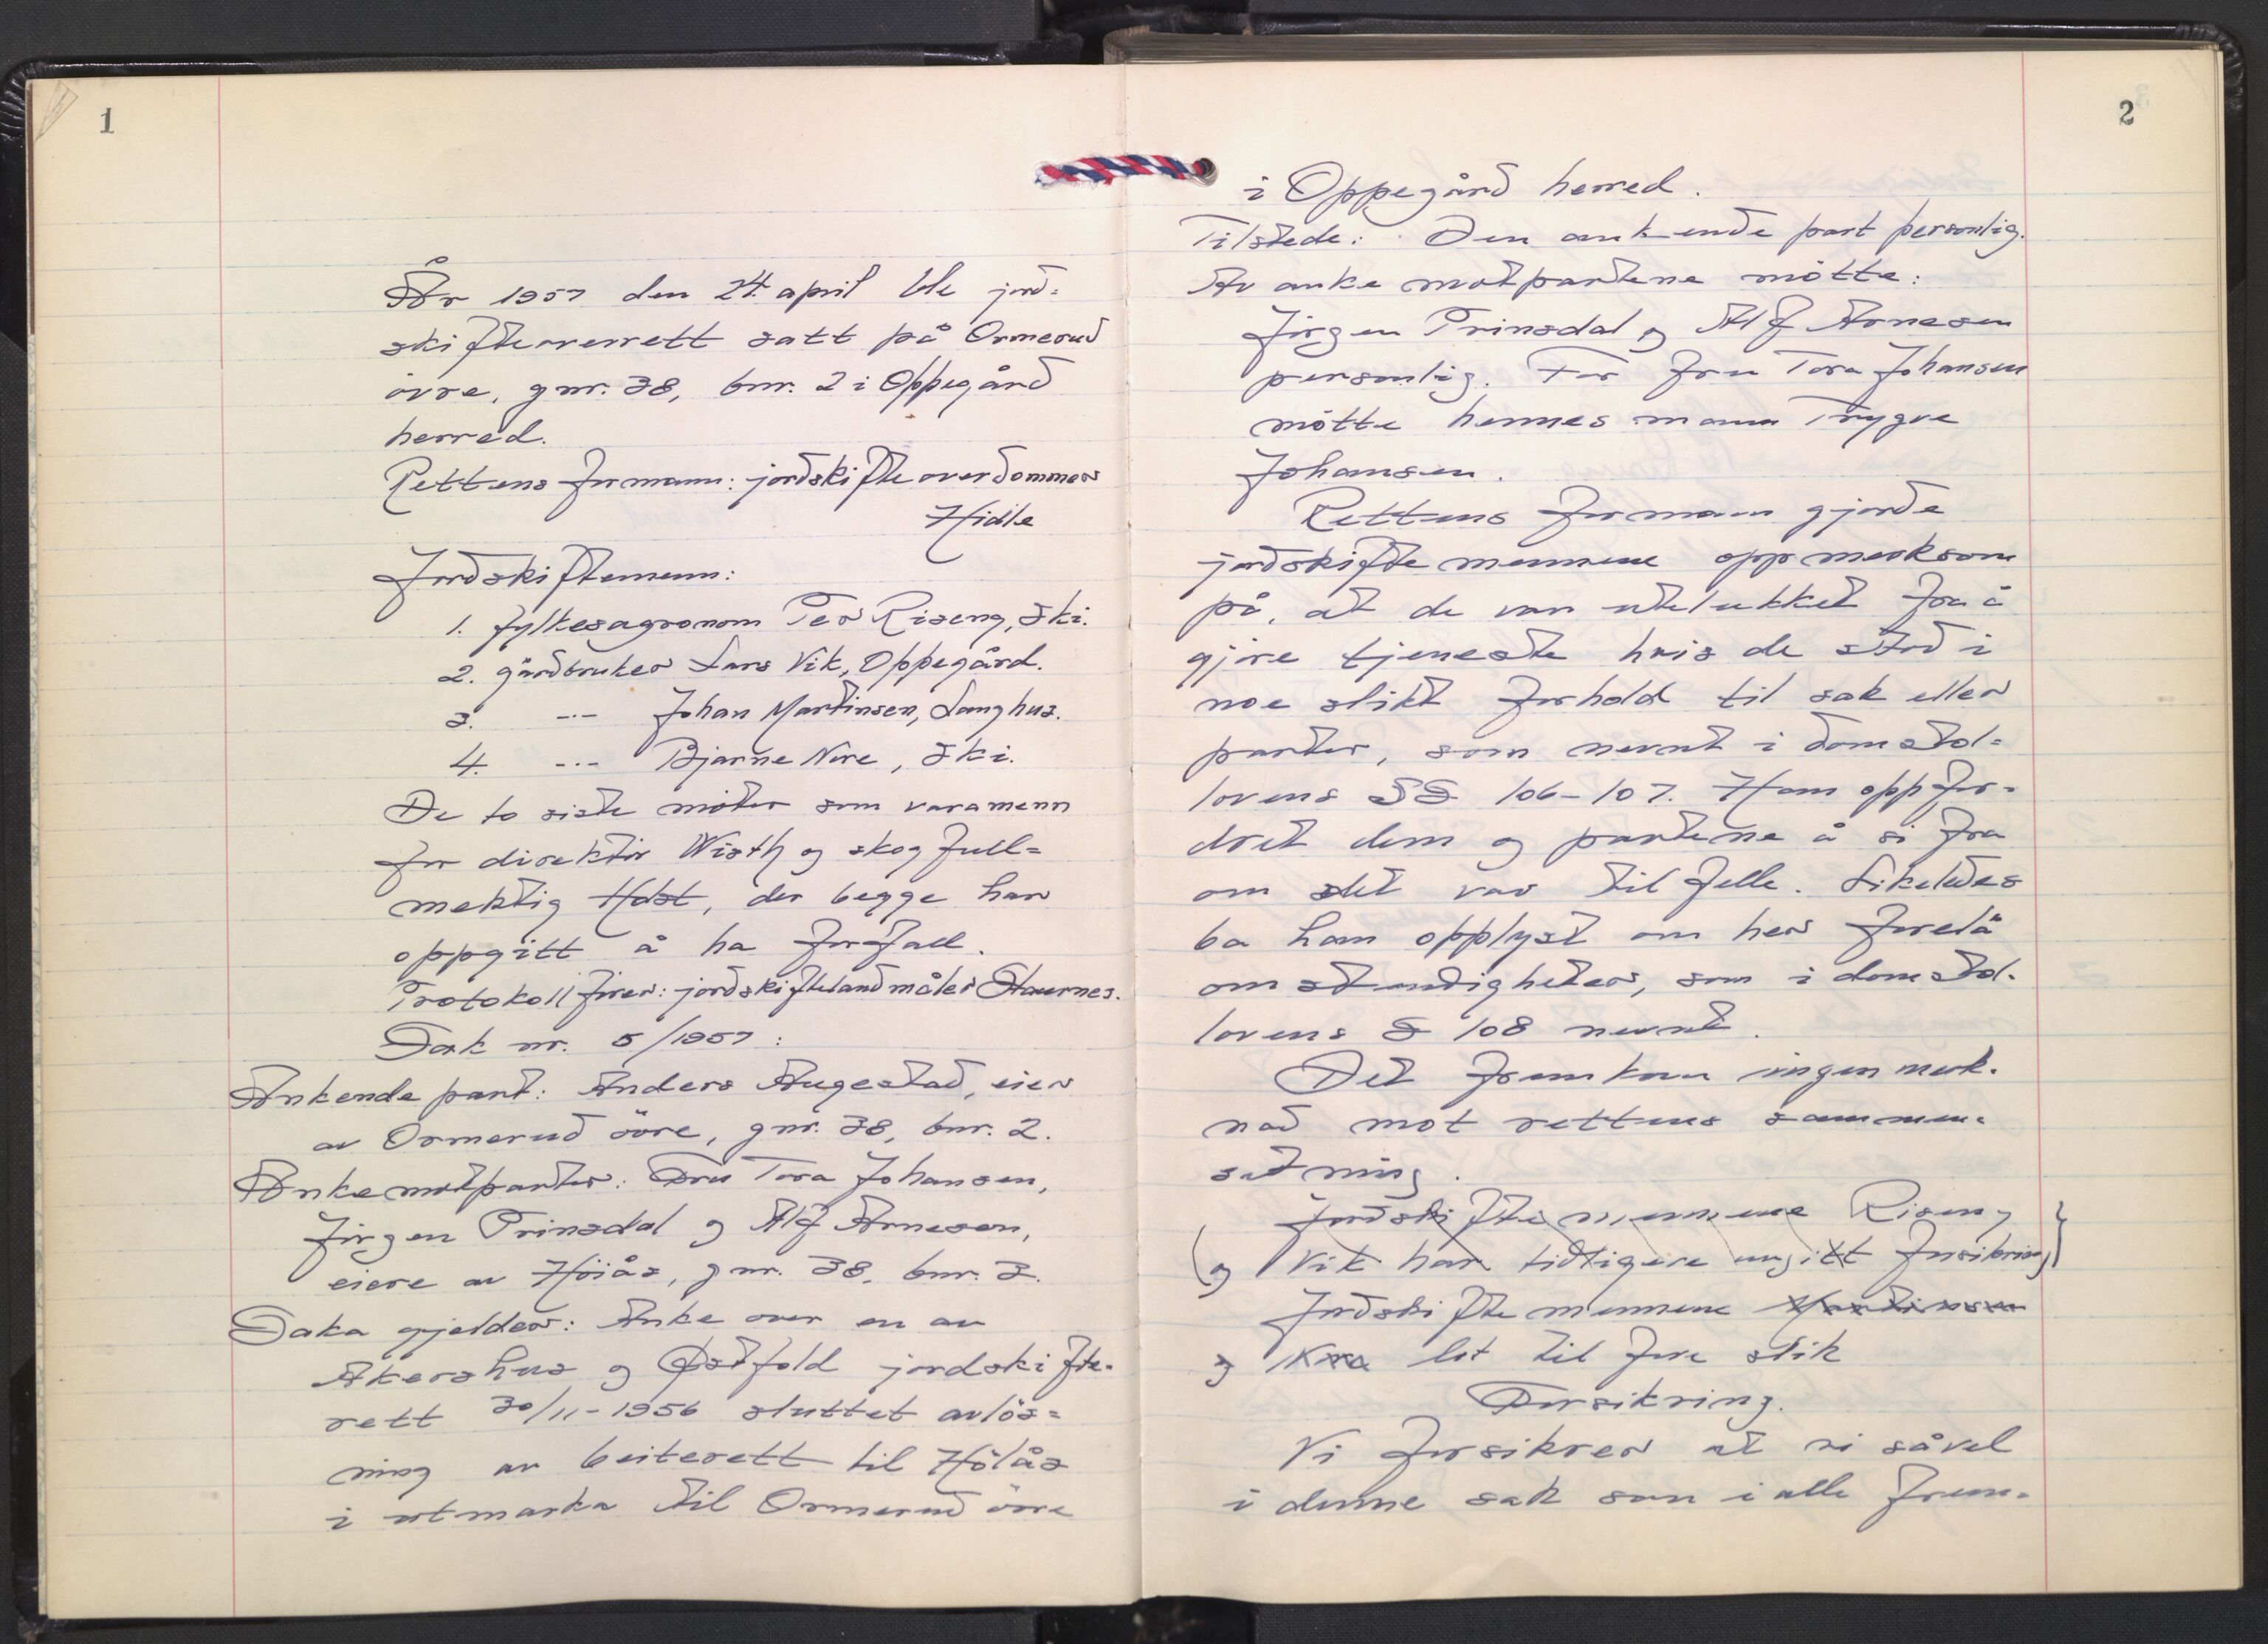 1
År 1957 den 24. april ble jord=
skifteoverrett satt på Ormerud
övre, gnr. 38, bnr. 2 i Oppegård
herred.
Rettens formann: jordskifteoverdommer
Hidle
Jordskiftemenn:
1. fylkesagronom Per Riseng, Ski.
2. gårdbruker Lars Vik, Oppegård.
3. -"- Johan Martinsen, Langhus.
4. -"- Bjarne Nore, Ski.
De to siste möter som varamenn
for direktör Wisth og skogfull=
mektig Holst, der begge har
oppgitt å ha forfall.
Protokollförer: jordskiftelandmåler Staurnes.
Sak nr. 5/1957:
Ankende part: Anders Augestad, eier
av Ormerud övre, gnr. 38, bnr. 2.
Ankemotparter: Fru Tora Johansen,
Jörgen Prinsdal og Alf Arnesen,
eiere av Höiås, gnr. 38, bnr. 3.
Saka gjelder: Anke over en av
Akershus og Østfold jordskifte-
rett 30/11-1956 sluttet avlös=
ning av beiterett til Höiås
i utmarka til Ormerud övre
2
i Oppegård herred.
Tilstede: Den ankende part personlig.
Av ankemotpartene mötte:
Jörgen Prinsdal og Alf Arnesen
personlig. For fru Tora Johansen
mötte hennes mann Trygve
Johansen.
Rettens formann gjorde
jordskiftemennene oppmerksom
på, at de var utelukket fra å
gjöre tjeneste hvis de stod i
noe slikt forhold til sak eller
parter, som nevnt i domstol=
lovens §§ 106-107. Han oppfor=
dret dem og partene å si fra
om det var tilfelle. Likeledes
ba han opplyst om her forelå
omstendigheter, som i domstol-
lovens § 108 nevnt.
Det fremkom ingen merk-
nad mot rettens sammen-
setning.
Jordskiftemennene Riseng
(og Vik har tidligere inngitt forsikring)
Jordskiftemennene Martinsen
og lot til före slik
Forsikring.
Vi forsikrer at vi såvel
i denne sak som i alle frem=